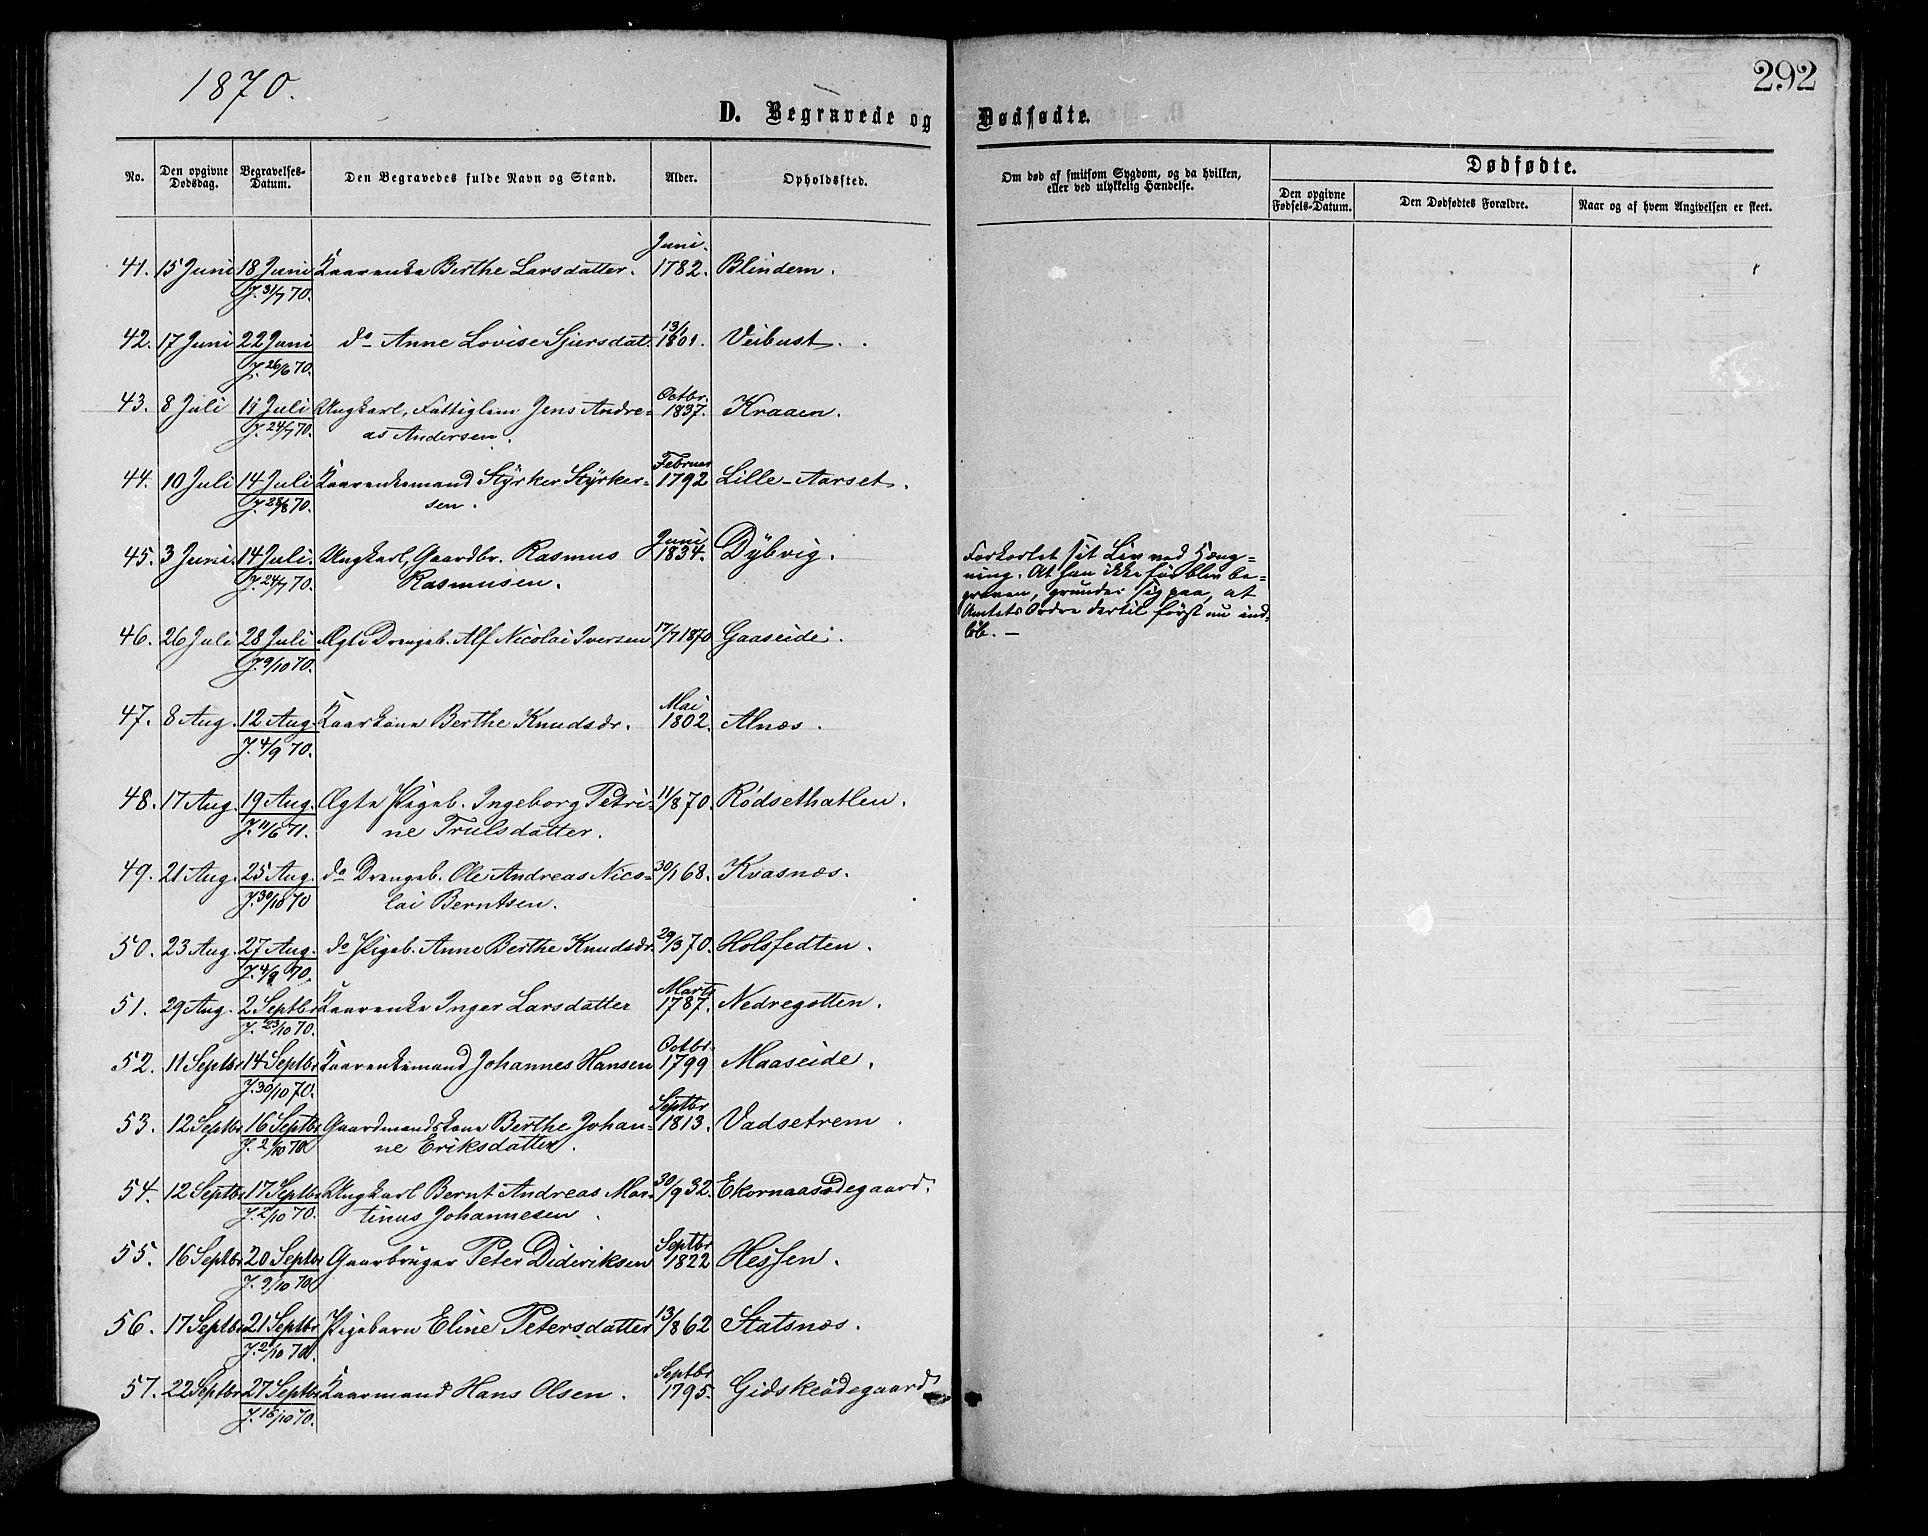 1870.
292
D. Begravede og Dødfødte.
No. Den opgivne Dødsdag. Begravelses-Datum. Den Begravedes fulde Navn og Stand. Alder. Opholdssted. Om død af smitsom Sygdom, og da hvilken, eller ved ulykkelig Hændelse. Dødfødte.
Den opgivne Fødsels-Datum. Den Dødfødtes Forældre. Naar og af hvem Angivelsen er skeet.
41. 15 Juni 18 Juni Kaarenke Berthe Larsdatter. Juni 1782. Blindem.
J. 31/7 70.
42. 17 Juni 22 Juni do Anne Lovise Sjursdat. 13/1 1801. Veibust.
J. 26/6 70.
43. 8 Juli 11 Juli Ungkarl, Fattiglem Jens Andre- Octbr. 1837. Kraaen.
J. 24/7 70. as Andersen.
44. 10 Juli 14 Juli Kaarenkemand Styrker Styrker- Februar 1792 Lille-Aarset.
J. 28/8 70. sen.
45. 3 Juni. 14 Juli. Ungkarl, Gaardbr. Rasmus Juni 1834. Dybvig. Forkortet sit Liv ved Hæng-
J. 24/7 70. Rasmusen. ning. At han ikke før blev be-
graven, grunder sig paa, at
Amtets Ordre dertil først nu ind-
løb. —
46. 26 Juli 28 Juli Ægte Drengeb. Alf Nicolai Iversen 17/7 1870 Gaaseide.
J. 9/10 70.
47. 8 Aug. 12 Aug. Kaarkone Berthe Knudsdr. Mai 1802. Alnæs.
J. 4/9 70.
48. 17 Aug. 19 Aug. Ægte Pigeb. Ingeborg Petri- 11/8 70. Rødsethatlen.
J. 11/6 71. ne Trulsdatter.
49. 21 Aug. 25 Aug. do Drengeb. Ole Andreas Nico- 30/1 68. Kvasnæs.
J. 30/10 70 lai Berntsen.
50. 23 Aug. 27 Aug. do Pigeb. Anne Berthe Knudsdr. 29/3 70. Holsfedten.
J. 4/9 70.
51. 29 Aug. 2 Septbr Kaarenke Inger Larsdatter Marts 1787. Nedregotten.
J. 23/10 70.
52. 11 Septbr 14 Septbr Kaarenkemand Johannes Hansen Octbr. 1799 Maaseide.
J. 30/10 70.
53. 12 Septbr 16 Septbr Gaardmandskone Berthe Johan- Septbr 1813. Vadsetrem.
J. 2/10 70 ne Eriksdatter.
54. 12 Septbr 17 Septbr Ungkarl Bernt Andreas Mar- 30/9 32. Ekornaasødegaard.
J. 2/10 70. tinus Johannesen.
55. 16 Septbr 20 Septbr Gaarbruger Peter Dideriksen Septbr 1822 Hessen.
J. 9/10 70
56. 17 Septbr 21 Septbr Pigebarn Eline Petersdatter 13/8 62 Statsnæs.
J. 2/10 70.
57. 22 Septbr 27 Septbr Kaarmand Hans Olsen. Septbr 1795. Gidskeødegaard
J. 16/10 70.